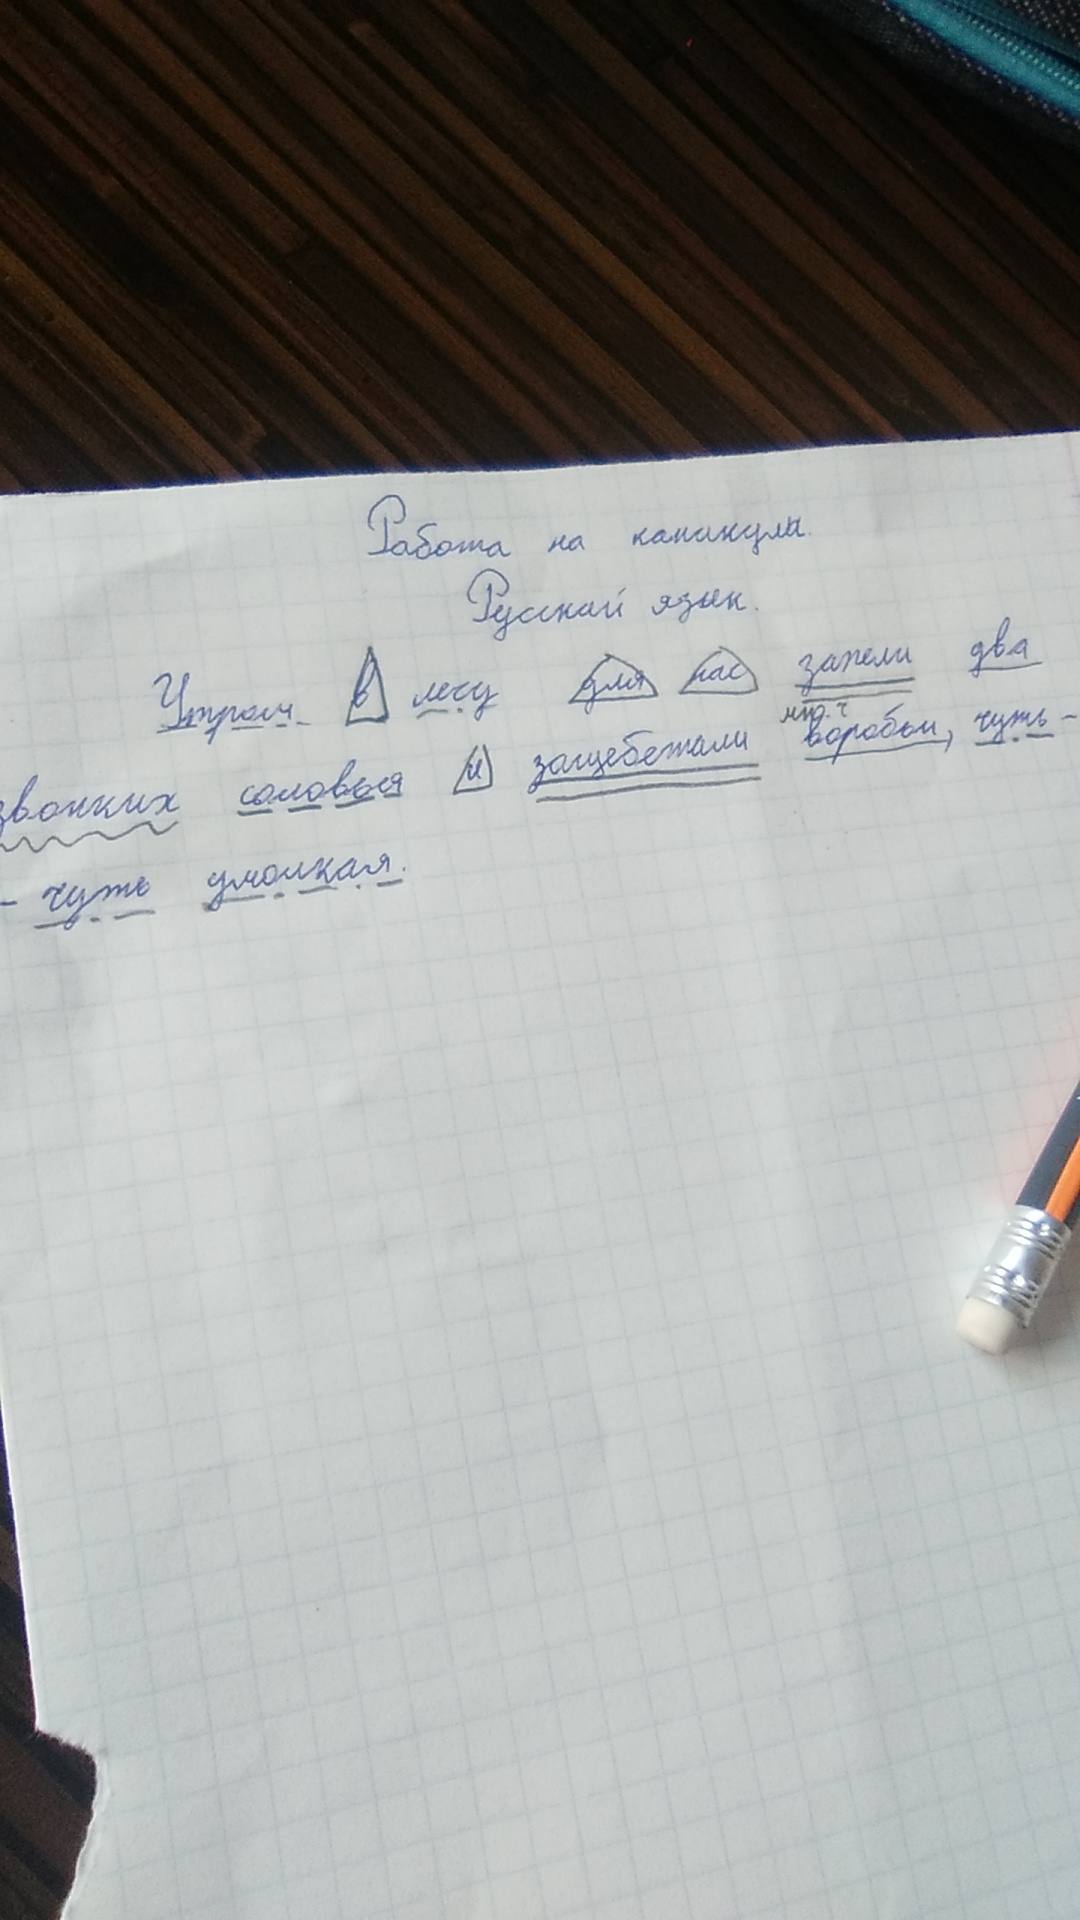 Работа на каникулы.
Русский язык.
Утром в лесу для нас запели два
мн. ч
звонких соловья и защебетали воробьи, чуть-
- чуть умолкая.